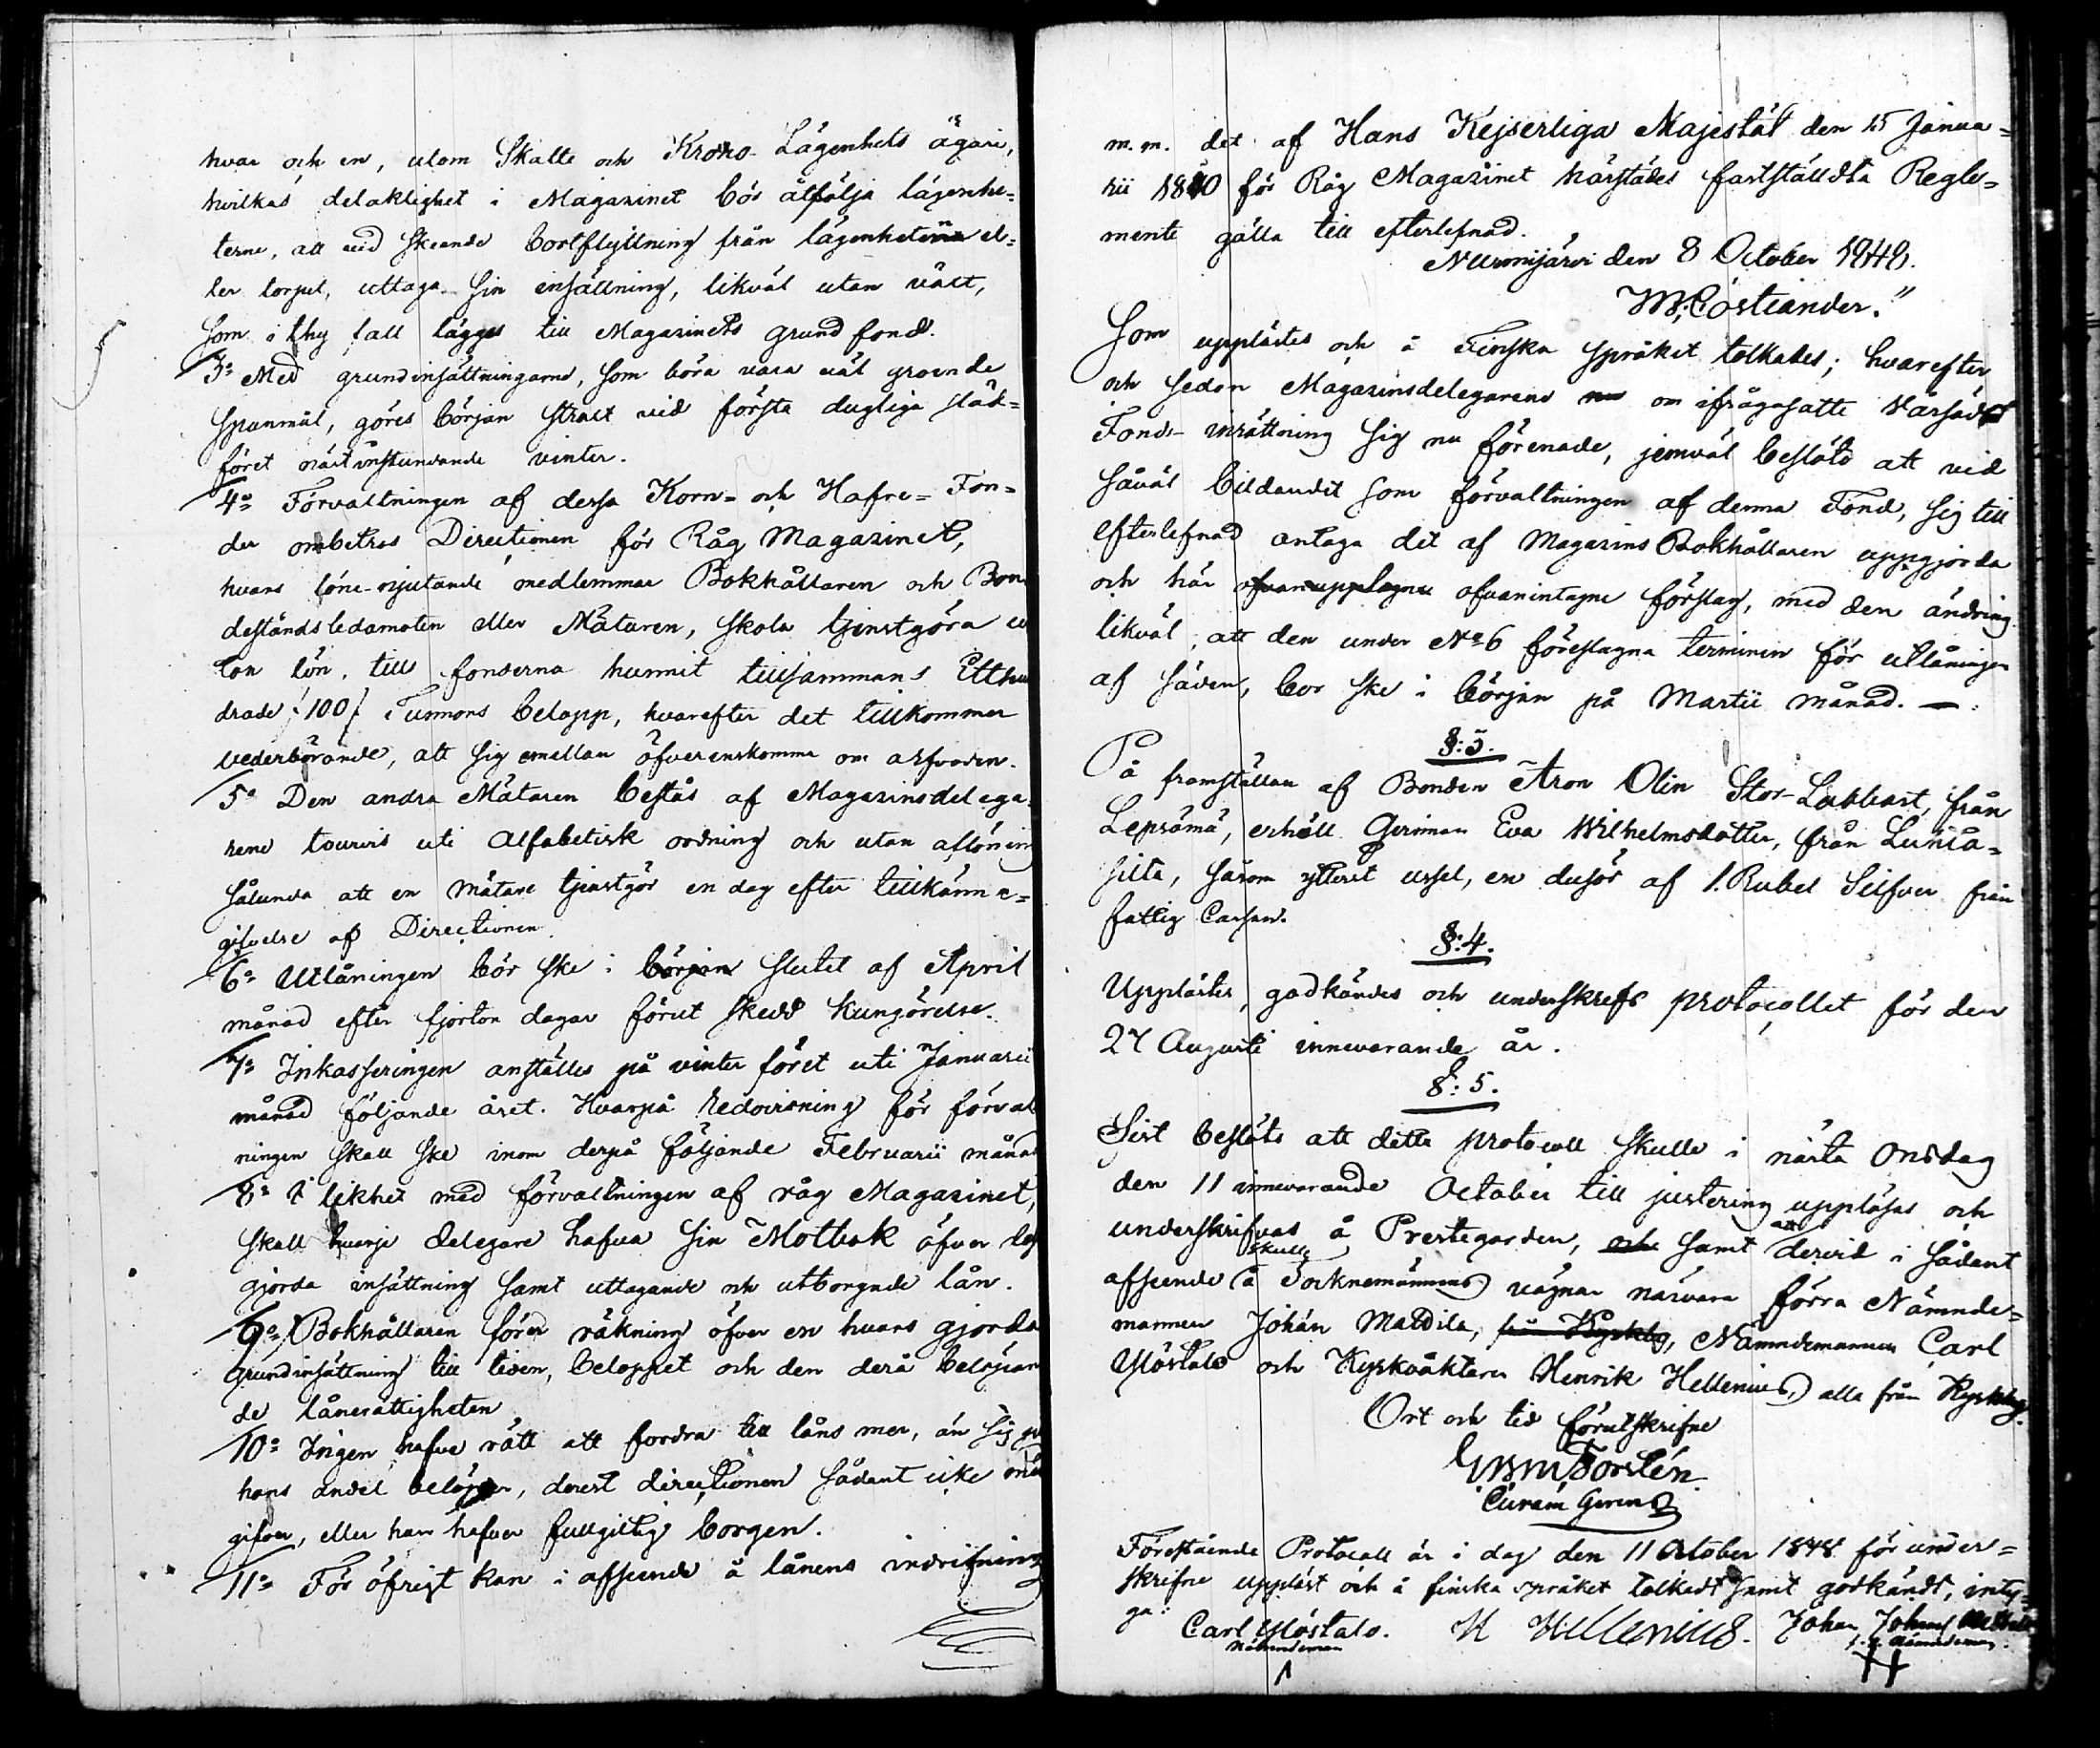 hvar och en, utom Skatte och Krono Lägenhets ägare,
hvilkas delaktighet i Magasinet bör åtfölja lägenhe=
terne, att vid skeende bortflyttning från lägenheten el=
ler torpet, uttaga sin insättning, likväl utan växt,
som i thy fall lägges till Magasinets grund fond.
3o Med grundinsättningarne, som böra vara väl groende
Spanmål, göres början strax vid första dugliga släd=
föret nästinstundande vinter.
4o Förvaltningen af dessa Korn= och Hafre= Fon=
der ombetros Directionen för Råg Magasinet,
hvars löne-njutande medlemmar Bokhållaren och Bon
deståndsledamoten eller Mätaren, skola tjenstgöra u
tan lön, till fonderna hunnit tillsammans Etthun
drade (100) Tunnors belopp, hvarefter det tillkommer
vederbörande, att sig emellan öfverenskomma om arfvoden.
5o Den andra Mätaren bestås af Magasinsdelega=
rene tourvis uti Alfabetisk ordning och utan aflöning
sålunda att en mätare tjenstgör en dag efter tillkänna=
gifvelse af Directionen.
6o Utlåningen bör ske i början slutet af April
månad efter fjorton dagar förut skedd kungörelse.
7o Inkasseringen anställes på vinter föret uti Januarii
månad följande året. Hvarpå Redovisning för förvalt
ningen skall ske inom derpå följande Februarii månad
8o I likhet med förvaltningen af råg Magasinet,
skall hvarje delegare hafva sin Motbok öfver
gjorda insättning samt uttagande och utborgade lån.
9o Bokhållaren förer räkning öfver en hvars gjorda
grundinsättning till tiden, beloppet och den derå belöpan
de lånerättigheten
10o Ingen hafve rätt att fordra till låns mer, än sig på
hans andel belöper, derest directionen sådant icke med
gifver, eller han hafver fullgiltig borgen.
11o För öfrigt kan i afseende å lånens indrifning
m.m. det af Hans Kejserliga Majestät den 15 Janua=
rii 1840 för Råg Magazinet härstädes fastställdta Regle=
mente gälla till efterlefnad.
Nurmijärvi den 8 October 1848.
M. Costiander."
Som upplästes och å Finska språket tolkades; hvarefter
och sedan Magasinsdelegarene om ifrågasatte Vårsäds
Fonds inrättning sig nu förenade, jemväl beslöts att vid
såväl bildandet som förvaltningen af denna Fond, sig till
efterlefnad antaga det af Magasins Bokhållaren uppgjorda
och här ofvanupptagne ofvanintagne förslag, med den ändring
likväl, att den under No 6 föreslagna terminen för utlåningen
af säden, bör ske i början på Martii månad. —
§: 3.
På framställan af Bonden Aron Olin Stor-Labbart, från
Lepsämä, erhöll Qvinnan Eva Wilhelmsdotter, från
silta, såsom ytterst ussel, en dusör af 1. Rubel Silfver från
fattig Cassan.
§: 4.
Upplästes, godkändes och underskrefs protocollet för den
27 Augusti innevarande år.
§: 5.
Sist beslöts att detta protocoll skulle i nästa Onsdag
den 11 innevarande October till justering uppläsas och
underskrifvas å Prestegården, och samt att dervid i sådant
afseende skulle å Socknemännens vägnar närvara förra Nämnde=
mannen Johan Mattila, från Kyrkby, Nämndemannen Carl
Ylöstalo och Kyrkväktaren Henrik Hellenius, alla från Kyrkby.
Ort och tid förutskrifne
Forstén
Curam Gerens
Förestående Protocoll är i dag den 11 October 1848 för under=
skrifne uppläst och å finska språket tolkadt samt godkändt, inty=
ga:
Carl Ylöstalo. H Hellenius. Johan Johansson Mattila
Nämndeman f.d. Nämndeman.